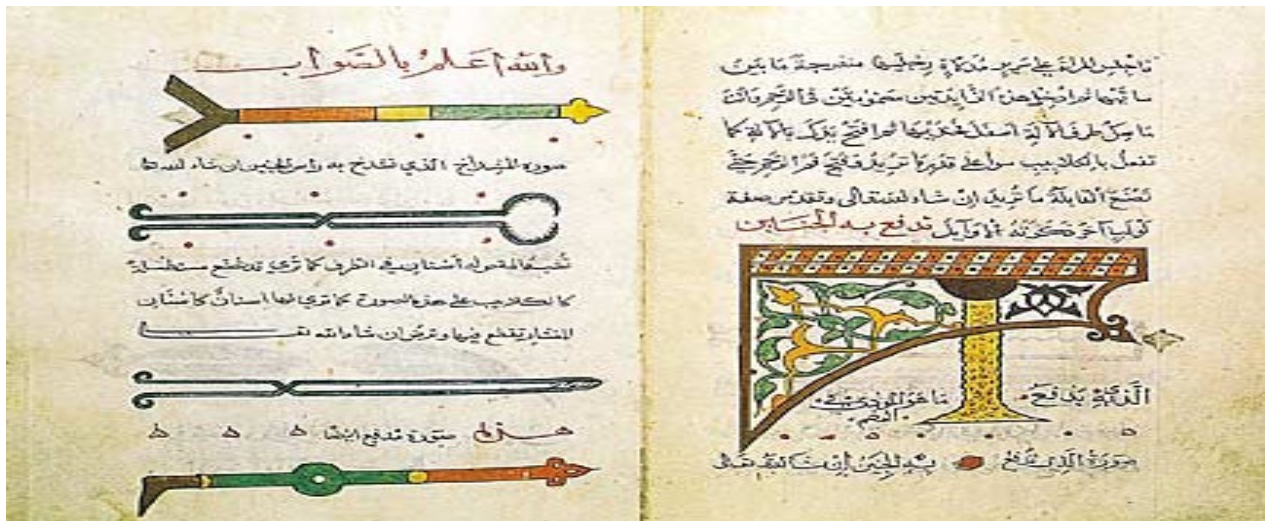 ما تجلس المراة على سرير مدلاة رجليها منفرجة ما بين
ساقيها ثم ادخل هذه الزايدتين مضمومتين في الرحم وانت
ماسك طرف الالة اسفل فخذيها ثم افتح يدك بالالة كما
تفعل بالكلاليب سوا على قدر ما تريد فتح فم الرحم حتى
تصنع القابلة ما تريد ان شاء الله تعالى صفة
لولب آخر ذكرته الاوايل تدفع به الجنين
يدفع ما هو
صورة الذي يدفع به الجنين إن شا الله تعالى
والله أعلم بالصواب
صورة المشداخ الذي تشدخ به رأس الجنين ان شاء الله تعا
تشبه المقص له أسنان في الطرف كما ترى قد تصنع مستطيلة
كالكلاليب على هذه الصورة كما ترى لها اسنان كاسنان
المنشار تقطع فيها وترض ان شاء الله تعا
هذه صورة مدفع ايضا